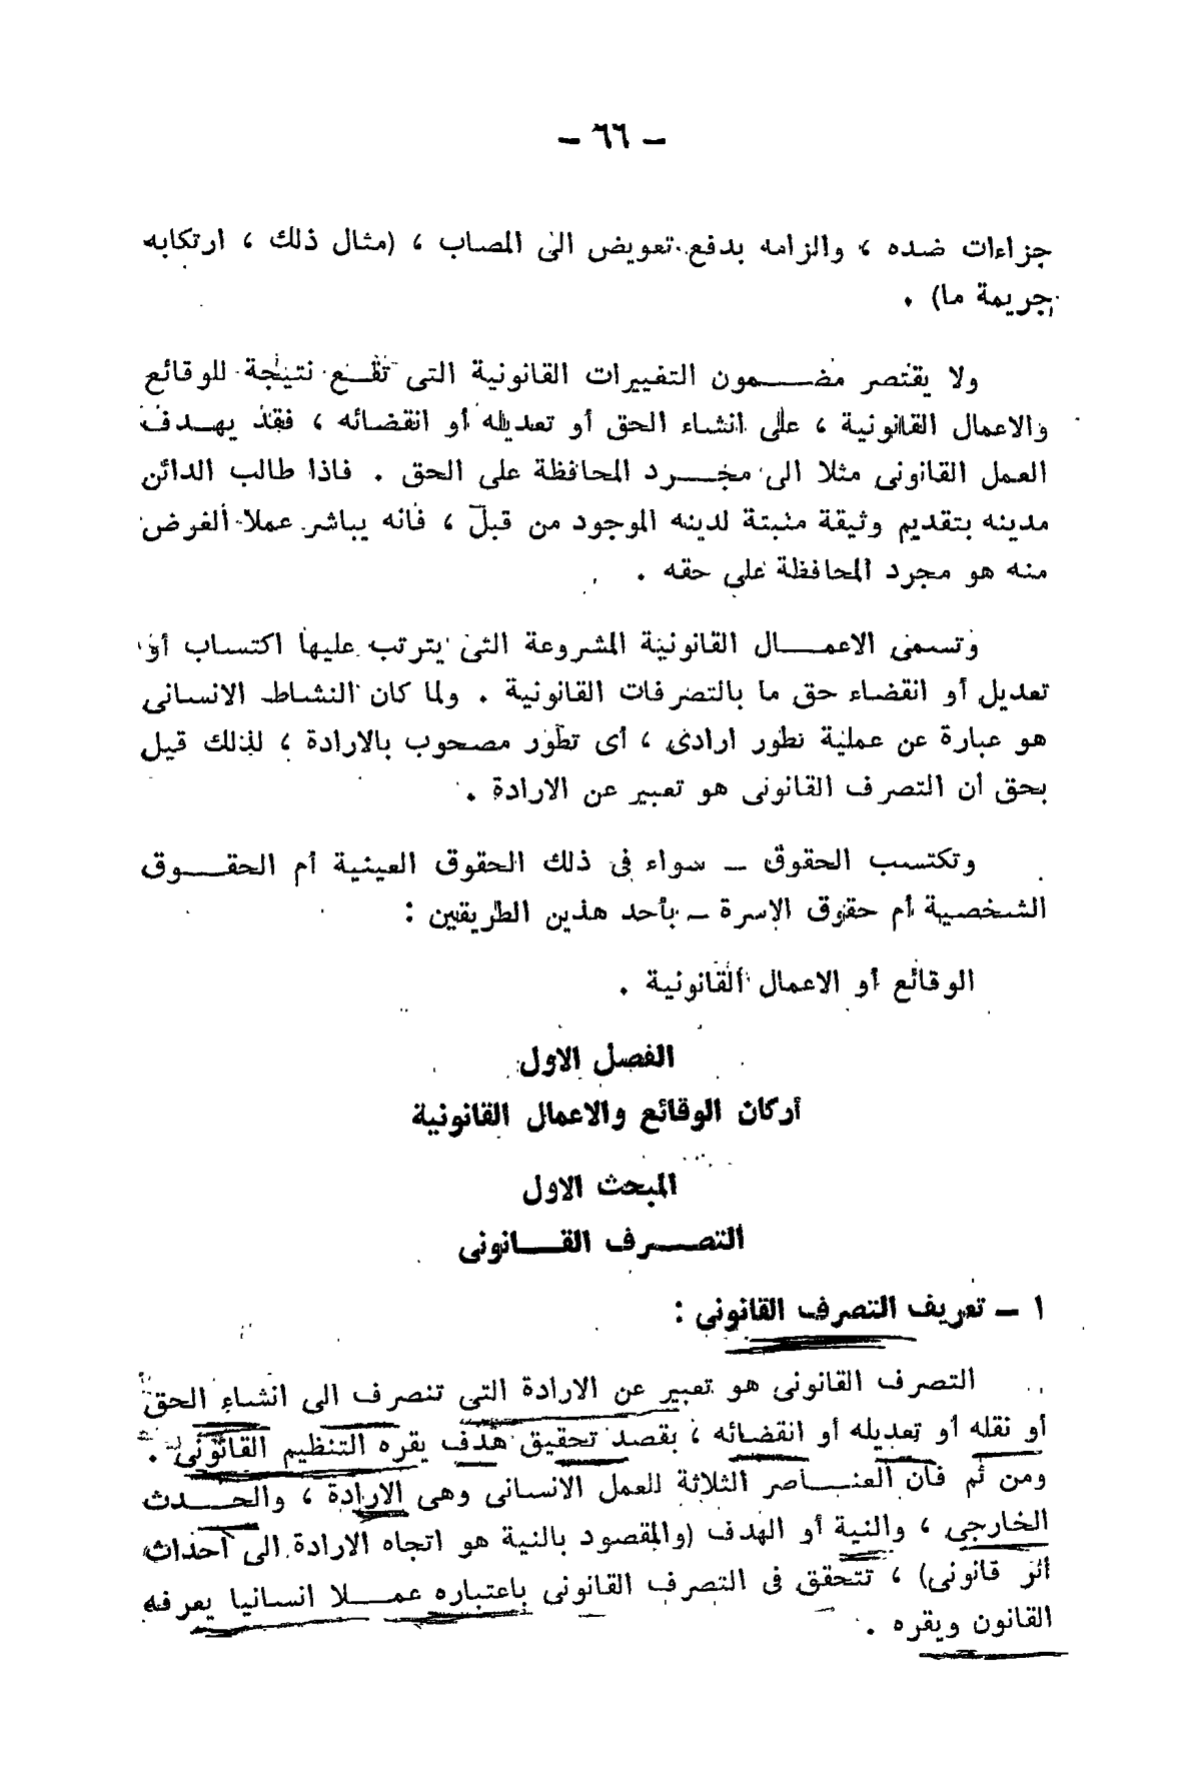 – ٦٦ –
جزاءات ضده ، والزامه بدفع تعويض الى المصاب ، (مثال ذلك ، ارتكابه
جريمة ما) .
ولا يقتصر مضـــمون التغييرات القانونية التى تقـع نتيجة للوقائع
والاعمال القانونية ، على انشاء الحق أو تعديله أو انقضائه ، فقد يهـدف
العمل القانونى مثلا الى مجـرد المحافظة على الحق . فاذا طالب الدائن
مدينه بتقديم وثيقة مثبتة لدينه الموجود من قبل ، فانه يباشر عملا الغرض
منه هو مجرد المحافظة على حقه .
وتسمى الاعمـــال القانونية المشروعة التى يترتب عليها اكتساب أو
تعديل أو انقضاء حق ما بالتصرفات القانونية . ولما كان النشاط الانسانى
هو عبارة عن عملية تطور ارادى ، أى تطور مصحوب بالارادة ، لذلك قيل
بحق أن التصرف القانونى هو تعبير عن الارادة .
وتكتسب الحقوق – سواء فى ذلك الحقوق العينية أم الحقـــوق
الشخصية أم حقوق الاسرة – بأحد هذين الطريقين :
الوقائع أو الاعمال القانونية .
الفصل الاول
أركان الوقائع والاعمال القانونية
المبحث الاول
التصــرف القــانونى
١ – تعريف التصرف القانونى :
التصرف القانونى هو تعبير عن الارادة التى تنصرف الى انشاء الحق
أو نقله أو تعديله أو انقضائه ، بقصد تحقيق هدف يقره التنظيم القانونى .
ومن ثم فان العنــاصر الثلاثة للعمل الانسانى وهى الارادة ، والحــدث
الخارجى ، والنية أو الهدف (والمقصود بالنية هو اتجاه الارادة الى أحداث
اثر قانونى) ، تتحقق فى التصرف القانونى باعتباره عمـــلا انسانيا يعرفه
القانون ويقره .